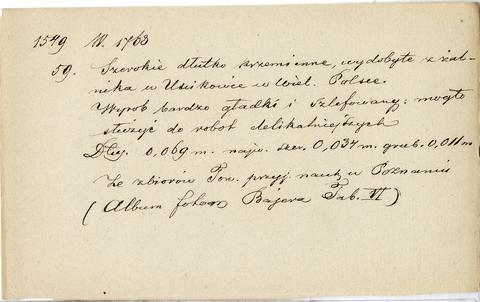 1549 N. 1763
59. Szerokie dłutko krzemienne, wydobyte z żal-
nika w Uścikowie w Wiel. Polsce.
Wyrób bardzo gładki i szlifowany: mogło
służyć do robót delikatniejszych
Dług. 0,069 m. najw. szer. 0,034 m. grub. 0,011 m
Ze zbiorów Tow. przyj. nauk w Poznaniu
(Album fotogr Bajera Tab. VI)